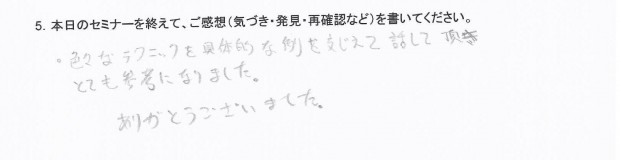 5. 本日のセミナーを終えて、ご感想（気づき・発見・再確認など）を書いてください。
。色々なテクニックを具体的な例を交じえて話して頂き
とても参考になりました。
ありがとうございました。